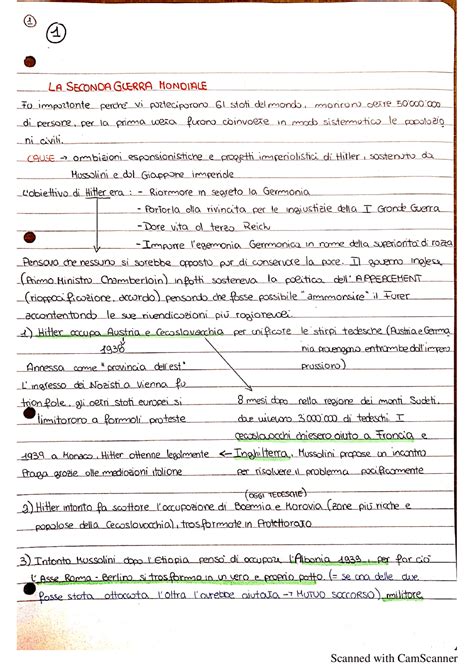 1
1
LA SECONDA GUERRA MONDIALE
Fu importante perché vi parteciparono 61 stati del mondo, morirono oltre 50'000'000
di persone, per la prima volta furono coinvolte in modo sistematico le popolazio
ni civili.
CAUSE → ambizioni espansionistiche e progetti imperialistici di Hitler, sostenuto da
Mussolini e dal Giappone imperiale
L'obiettivo di Hitler era : - Riarmare in segreto la Germania
- Portarla alla rivincita per le ingiustizie della I Grande Guerra
- Dare vita al terzo Reich
- Imporre l'egemonia Germanica in nome della superiorità di razza
Pensava che nessuno si sarebbe opposto pur di conservare la pace. Il governo inglese
(Primo Ministro Chamberlain) infatti sosteneva la politica dell'APPEACEMENT
(riappacificazione, accordo) pensando che fosse possibile "ammansire" il Furer
accontentando le sue rivendicazioni più ragionevoli.
1) Hitler occupa Austria e Cecoslovacchia per unificare le stirpi tedesche (Austria e Germa
1938
nia provengono entrambe dall'impero
prussiano)
Annessa come "provincia dell'est"
L'ingresso dei Nazisti a Vienna fu
trionfale, gli altri stati europei si
limitarono a formali proteste
8 mesi dopo nella regione dei monti Sudeti,
due vivevano 3'000'000 di tedeschi I
cecoslovacchi chiesero aiuto a Francia e
1939 a Monaco, Hitler ottenne legalmente ← Inghilterra, Mussolini propose un incontro
Praga grazie alle mediazioni italiane
per risolvere il problema pacificamente
(OGGI TEDESCHE)
2) Hitler intanto fa scattare l'occupazione di Boemia e Moravia (zone più ricche e
popolose della Cecoslovacchia), trasformate in Protettorato
3) Intanto Mussolini dopo l'Etiopia pensò di occupare l'Albania 1939, per far ciò
l'Asse Roma - Berlino si trasforma in un vero e proprio patto (= se una delle due
fosse stata attaccata l'altra l'avrebbe aiutata → MUTUO SOCCORSO) militare
Scanned with CamScanner